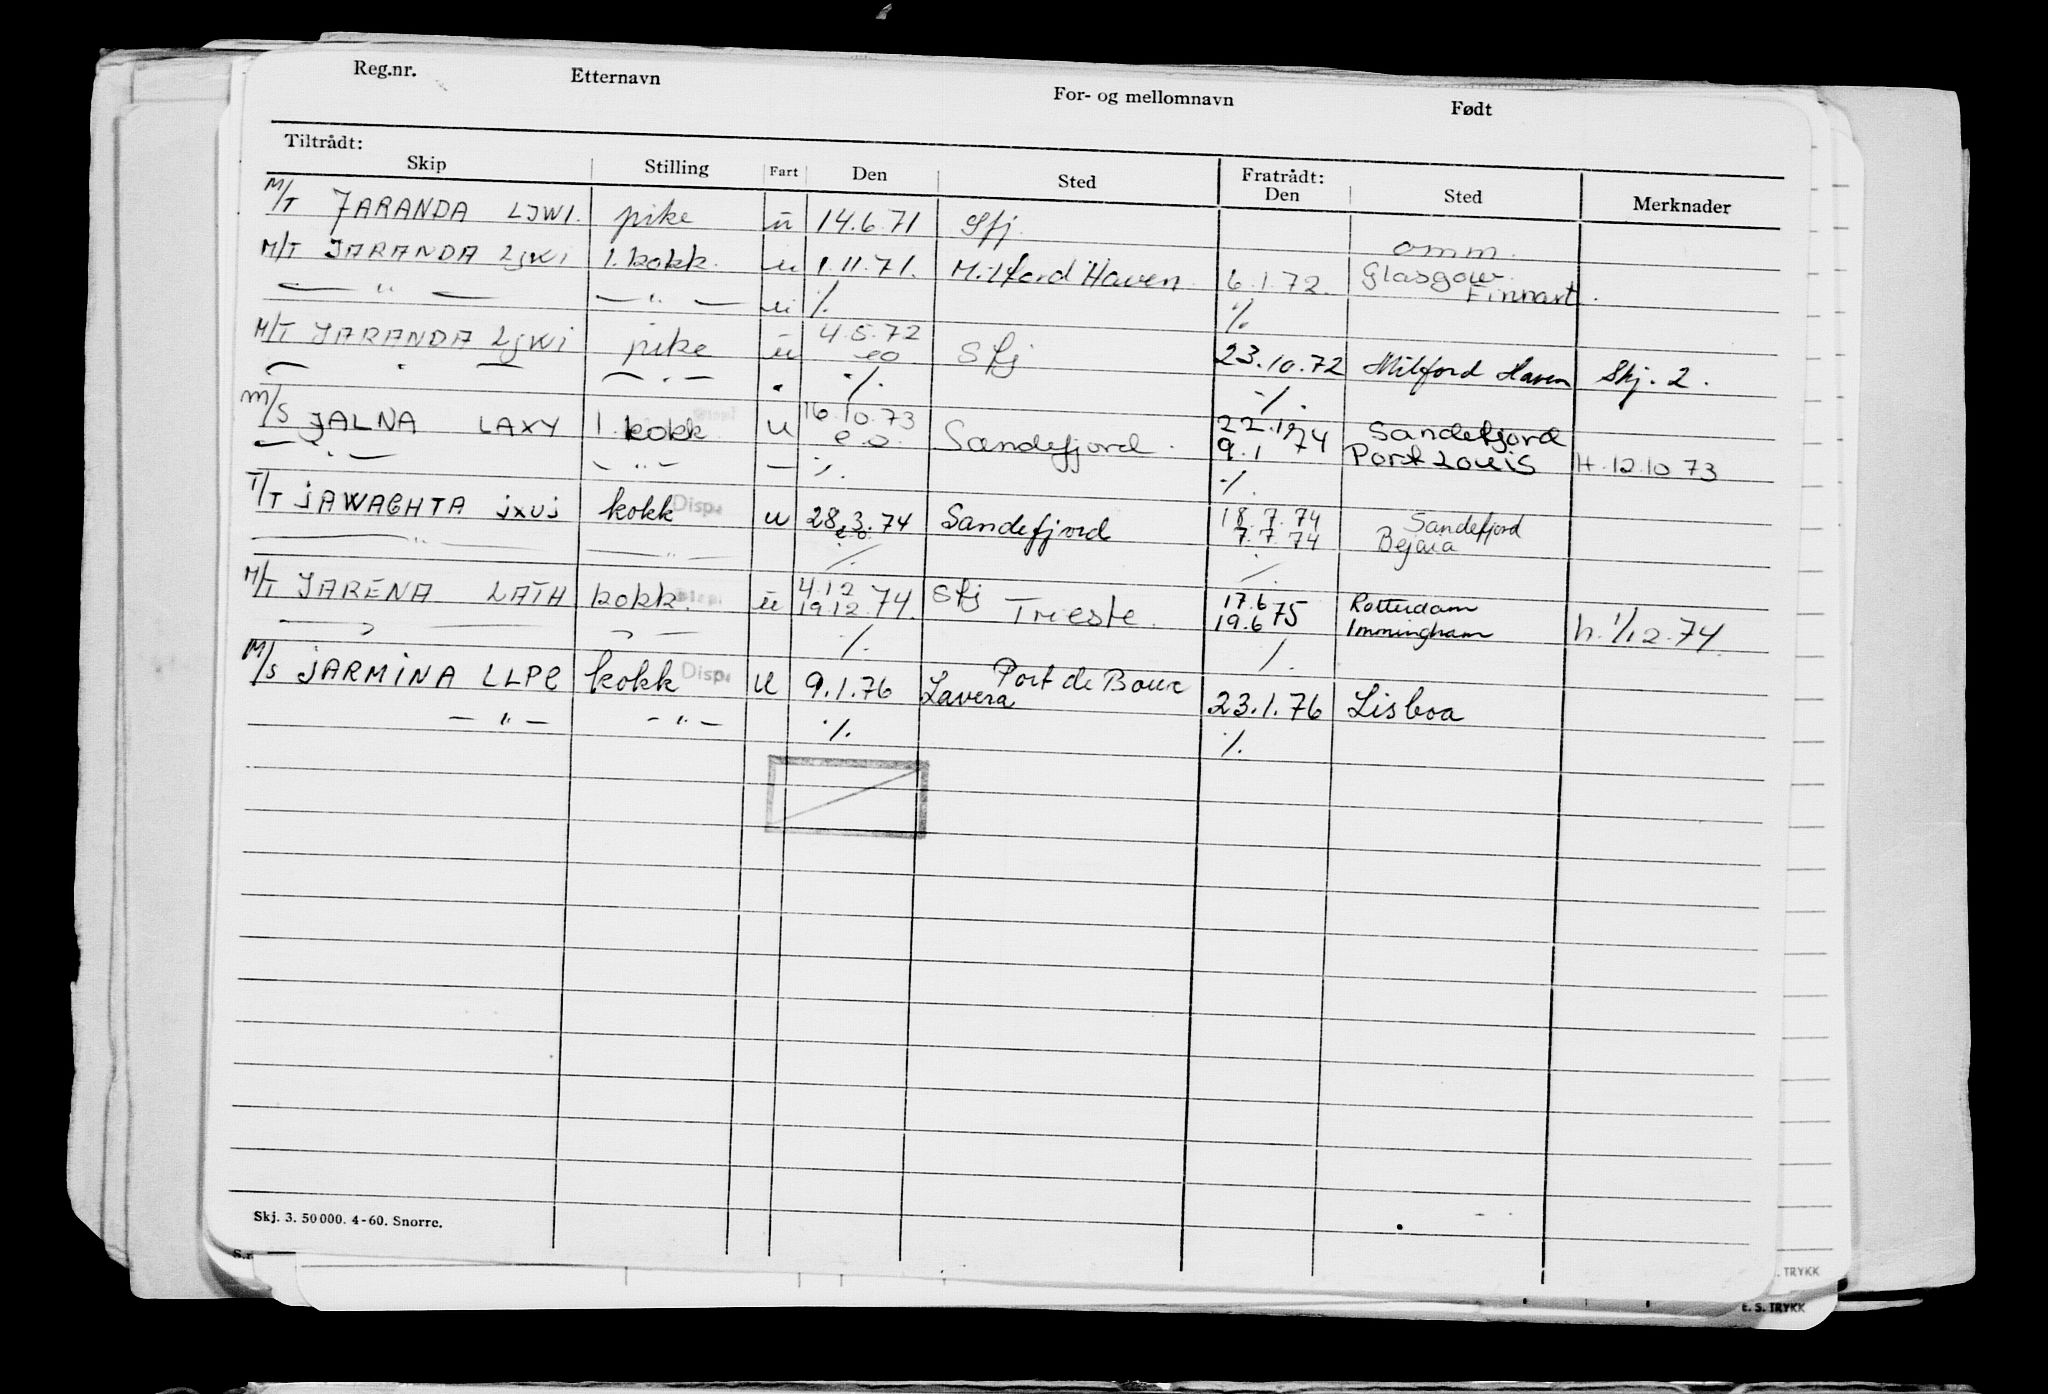 Reg.nr. Etternavn For- og mellomnavn Født
Tiltrådt: Fratrådt:
Skip Stilling Fart Den Sted Den Sted Merknader
M/T JARANDA LJWI. pike u 14.6.71 Sfj. omm.
M/T JARANDA LJWI 1. kokk. u 1.11.71. Milford Haven 6.1.72. Glasgow Finnart.
— " — — " — u ·/. ·/.
M/T JARANDA LJWI pike u 4.5.72 eo Sfj 23.10.72 Milford Haven Skj. 2.
— · — — · — · ·/. ·/.
M/S JALNA LAXY 1. kokk u 16.10.73 e.o. Sandefjord. 22.1 9.1 74 Sandefjord Port Louis H.12.10 73
— " — — " — — ·/. ·/.
T/T JAWAGHTA JXUJ kokk Disp. u 28.3.74 e.o. Sandefjord 18.7.74 7.7.74 Sandefjord Bejaia
— " — — " — ·/. ·/.
M/T JARENA LATH kokk. u 4.12 19.12.74. Sfj Trieste. 17.6 19.6 75 Rotterdam Immingham h. 1/12.74.
·/. ·/.
M/S JARMINA LLPC kokk Disp. u 9.1.76 Port de Bouc Lavera 23.1.76 Lisboa
— " — — " — ·/. ·/.
Skj. 3. 50 000. 4-60. Snorre.
S.r
. TRYKK
E. S. TRYKK